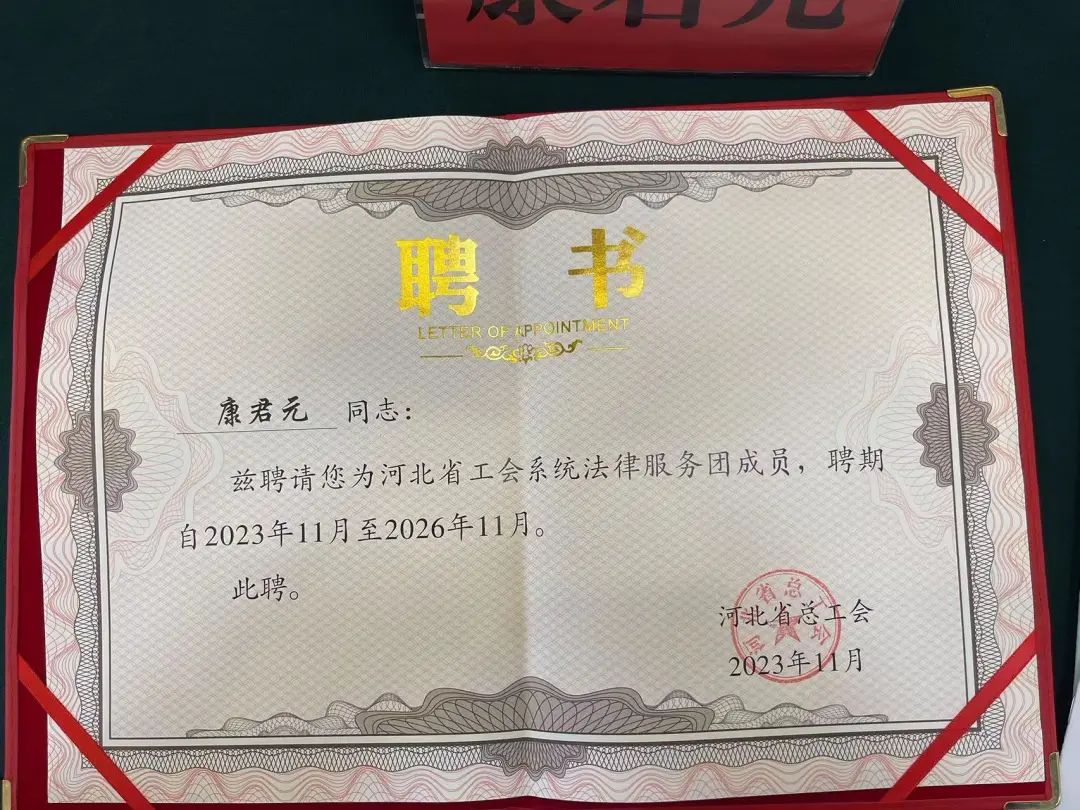 康君元
聘书
LETTER OF APPOINTMENT
康君元 同志：
兹聘请您为河北省工会系统法律服务团成员，聘期
自2023年11月至2026年11月。
此聘。
河北省总工会
河北省总工会
2023年11月